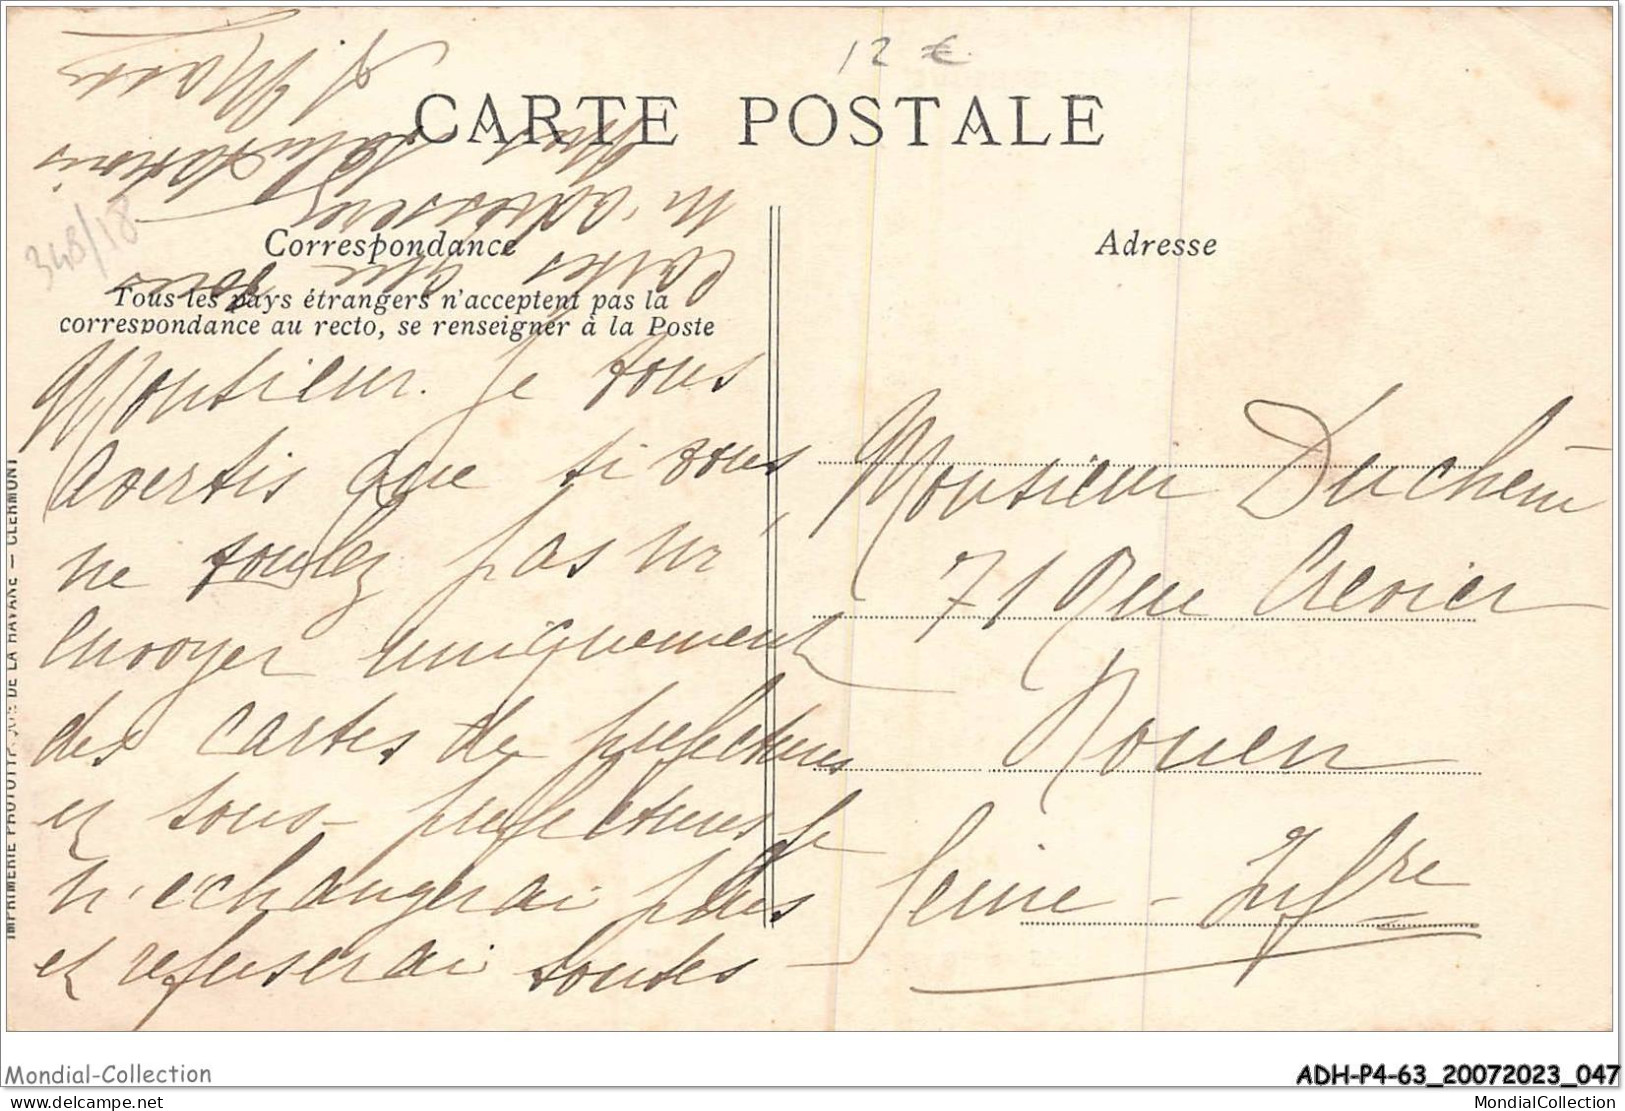 12 €
CARTE POSTALE
348/18
Correspondance
Adresse
Tous les pays étrangers n'acceptent pas la
correspondance au recto, se renseigner à la Poste
Monsieur. Je vous
avertis que si vous
ne voulez pas m'
envoyer uniquement
des cartes de préfectures
et sous-préfectures je
n'échangerai plus
et refuserai toutes
cartes que vous
m'adresserez
salutations
Monsieur Duchêne
71 Rue Crevier
Rouen
Seine-Infre
IMPRIMERIE PHOTOTYP. DE LA HAVANE — CLERMONT
Mondial-Collection
ADH-P4-63_20072023_047
delcampe.net
MondialCollection